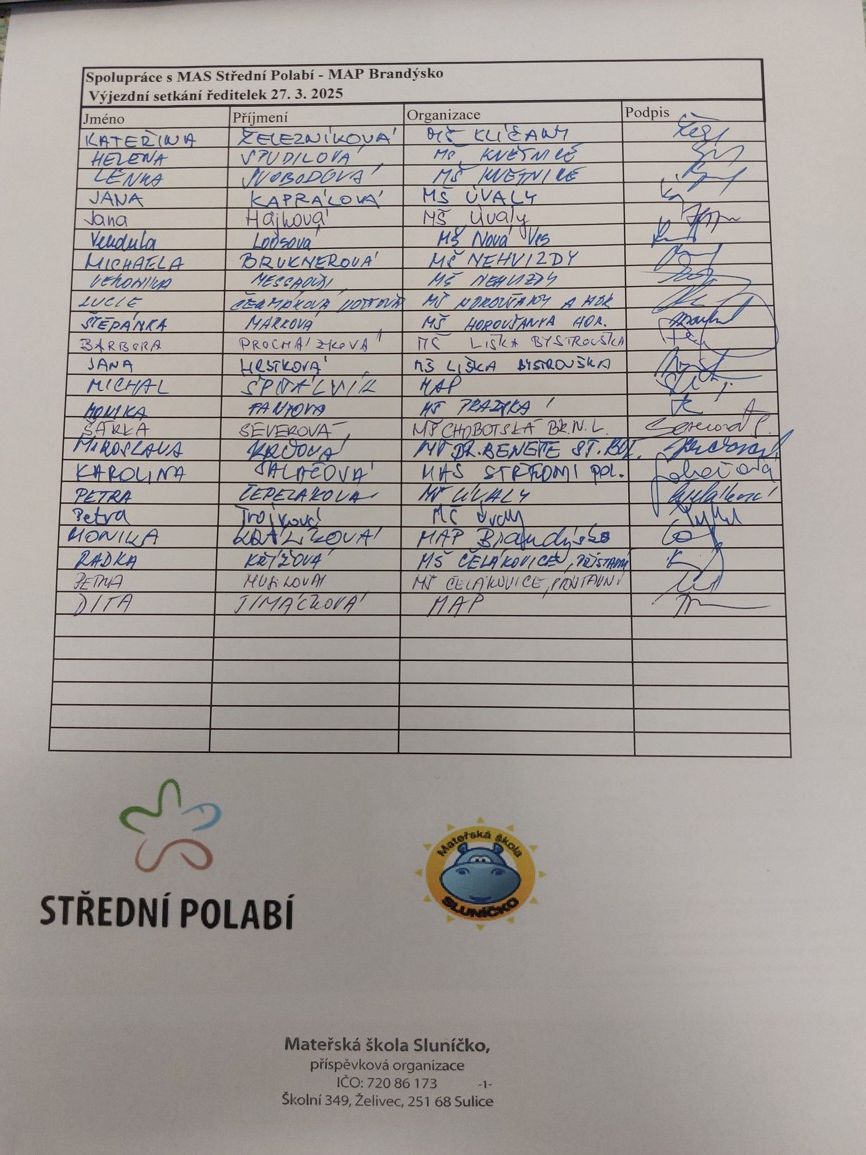 Spolupráce s MAS Střední Polabí - MAP Brandýsko
Výjezdní setkání ředitelek 27. 3. 2025
Jméno Příjmení Organizace Podpis
KATEŘINA ŽELEZNÍKOVÁ MŠ KLÍČANY
HELENA STUDILOVÁ MŠ KVĚTNICE
LENKA SVOBODOVÁ MŠ KVĚTNICE
JANA KAPRÁLOVÁ MŠ ÚVALY
Jana Hájková MŠ Úvaly
Vendula MŠ Nová Ves
MICHAELA BRUKNEROVÁ MŠ NEHVIZDY
VERONIKA MŠ NEHVIZDY
LUCIE ČERMÁKOVÁ MŠ
ŠTĚPÁNKA MARKOVÁ MŠ
BARBORA PROCHÁZKOVÁ MŠ LIŠKA BYSTROUŠKA
JANA HRSTKOVÁ MŠ LIŠKA BYSTROUŠKA
MICHAL MAP
MONIKA MŠ
ŠÁRKA SEVEROVÁ MŠ CHOBOTSKÁ BR.N.L.
MIROSLAVA MŠ DR. BENEŠE
KAROLINA SALAČOVÁ MAS STŘEDNÍ POL.
PETRA ČEPELÁKOVÁ MŠ ÚVALY
Petra Trojková MŠ Úvaly
MONIKA KRÁLÍKOVÁ MAP Brandýsko
RADKA KŘÍŽOVÁ MŠ ČELÁKOVICE,
PETRA MŠ ČELÁKOVICE,
DITA JIMÁČKOVÁ MAP
STŘEDNÍ POLABÍ
Mateřská škola
SLUNÍČKO
Mateřská škola Sluníčko,
příspěvková organizace
IČO: 720 86 173 -1-
Školní 349, Želivec, 251 68 Sulice